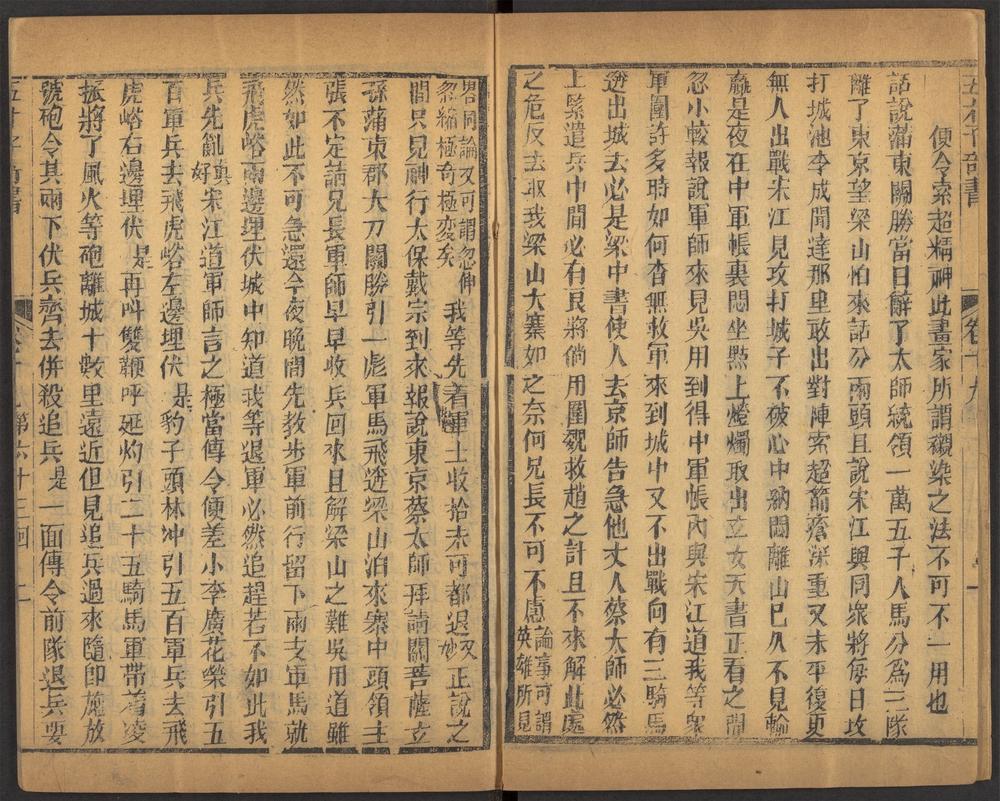 五才子奇書
卷十九
便令索超精神此畫家所謂襯染之法不可不一用也
話說蒲東關勝當日辭了太師統領一萬五千人馬分爲三隊
離了東京望梁山泊來話分兩頭且說宋江與同衆將每日攻
打城池李成聞達那里敢出對陣索超箭瘡深重又未平復更
無人出戰宋江見攻打城子不破心中納悶離山已久不見輸
贏是夜在中軍帳裏悶坐㸃上燈燭取出玄女天書正看之間
忽小較報說軍師來見吳用到得中軍帳內與宋江道我等衆
軍圍許多時如何杳無救軍來到城中又不出戰向有三騎馬
迯出城去必是梁中書使人去京師告急他丈人蔡太師必然
上緊遣兵中間必有良將倘用圍魏救趙之計且不來解此處
之危反去取我梁山大寨如之奈何兄長不可不慮論事可謂英雄所見
畧同論又可謂忽伸忽縮極奇極變矣我等先着軍士收拾未可都退又妙正說之
間只見神行太保戴宗到來報說東京蔡太師拜請關菩薩玄
孫蒲東郡大刀關勝引一彪軍馬飛迯梁山泊來寨中頭領主
張不定請兄長軍師早早收兵回來且解梁山之難吳用道雖
然如此不可急還今夜晚間先教步軍前行留下兩支軍馬就
飛虎峪兩邊埋伏城中知道我等退軍必然追趕若不如此我
兵先亂眞好宋江道軍師言之極當傳令便差小李廣花榮引五
百軍兵去飛虎峪左邊埋伏是豹子頭林冲引五百軍兵去飛
虎峪右邊埋伏是再呌雙鞭呼延灼引二十五騎馬軍帶着凌
振將了風火等砲離城十數里遠近但見追兵過來隨卽施放
號砲令其兩下伏兵齊去併殺追兵是一面傳令前隊退兵要
五才子奇書
卷十九第六十三回
二